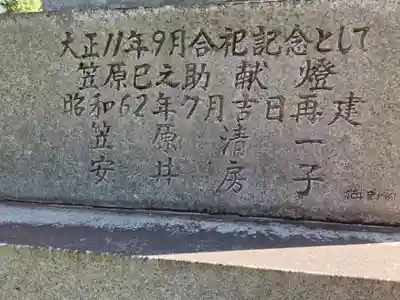 大正11年9月合祀記念として
笠原巳之助 献燈
昭和62年7月吉日再建
笠原清一
安井房子